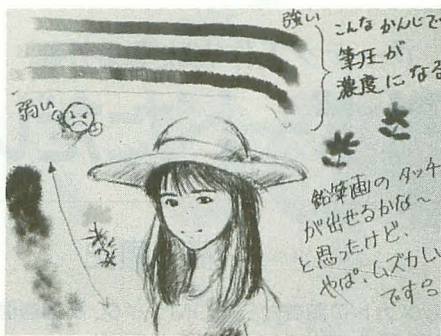 強い
こんな かんじで
筆圧が
濃度になる
弱い
鉛筆画の タッチ
が出せるかな～
と思ったけど、
やぱ。ムズかしい
です